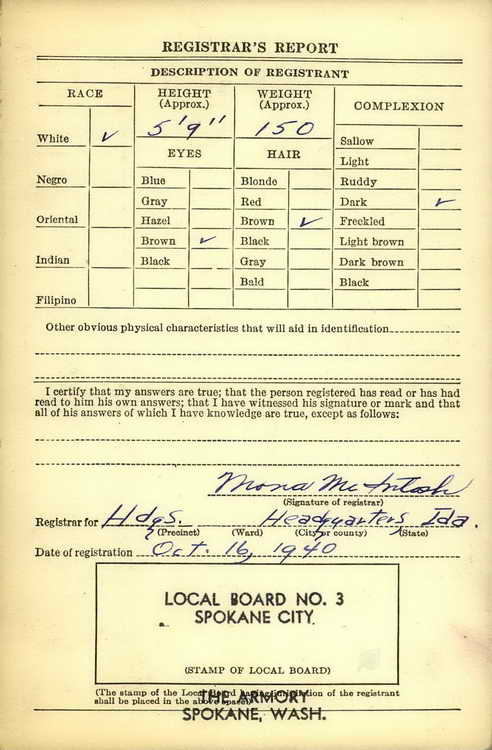 REGISTRAR'S REPORT
DESCRIPTION OF REGISTRANT
RACE
HEIGHT
(Approx.)
WEIGHT
(Approx.)
COMPLEXION
5'9"
150
White ✓
EYES
HAIR
Sallow
Light
Negro
Blue
Blonde
Ruddy
Gray
Red
Dark ✓
Oriental
Hazel
Brown ✓
Freckled
Brown ✓
Black
Light brown
Indian
Black
Gray
Dark brown
Bald
Black
Filipino
Other obvious physical characteristics that will aid in identification
I certify that my answers are true; that the person registered has read or has had
read to him his own answers; that I have witnessed his signature or mark and that
all of his answers of which I have knowledge are true, except as follows:
Mona McIntosh
(Signature of registrar)
Registrar for Hdqs. Headquarters Ida.
(Precinct) (Ward) (City or county) (State)
Date of registration Oct. 16, 1940
LOCAL BOARD NO. 3
SPOKANE CITY
(STAMP OF LOCAL BOARD)
THE ARMORY
(The stamp of the Local Board having jurisdiction of the registrant
shall be placed in the above space.)
SPOKANE, WASH.